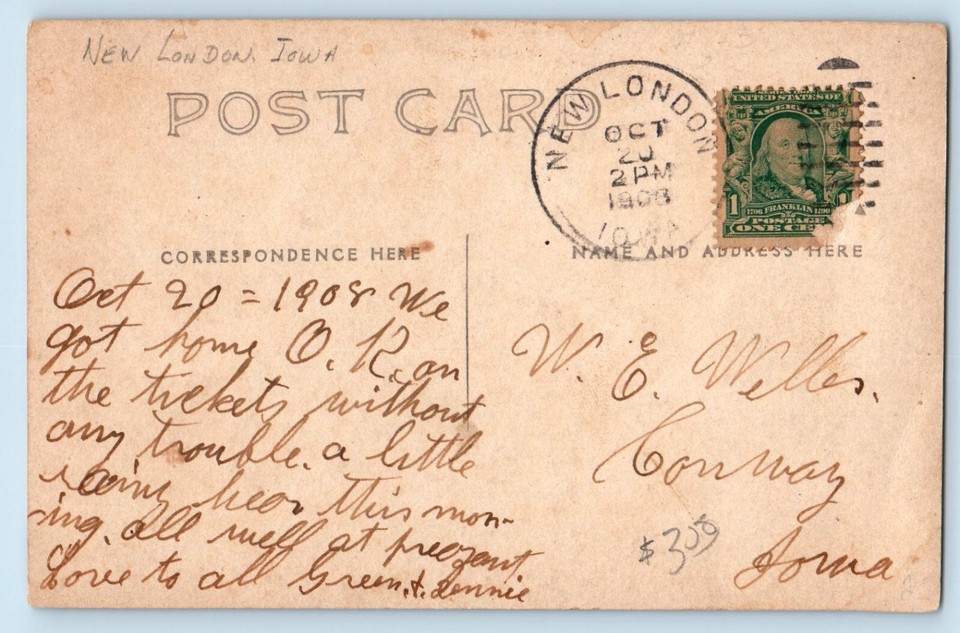 New London, Iowa
POST CARD
NEW LONDON
OCT
20
2 PM
1908
IOWA
UNITED STATES OF
AMERICA
1706 FRANKLIN 1790
1
POSTAGE
ONE CE
CORRESPONDENCE HERE
NAME AND ADDRESS HERE
Oct 20 = 1908 We
got home O.K. on
the tickets without
any trouble. a little
rainy hear this mon-
ing. all well at prezant
Love to all Green. &. Jennie
W. E. Welles.
Conway
Iowa
$300